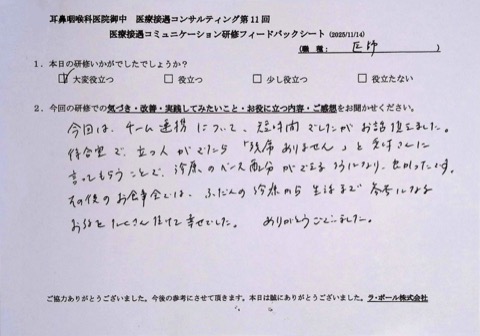 耳鼻咽喉科医院御中 医療接遇コンサルティング第11回
医療接遇コミュニケーション研修フィードバックシート(2025/11/14)
(職種: 医師 )
1.本日の研修いかがでしたでしょうか?
☑ 大変役立つ □ 役立つ □ 少し役立つ □ 役立たない
2.今回の研修での気づき・改善・実践してみたいこと・お役に立つ内容・ご感想をお聞かせください。
今回は、チーム連携について、短時間でしたがお話頂きました。
待合室で、立つ人がでたら「残席ありません」と受付さんに
言ってもらうことで、診療のペース配分ができるようになり、良かったです。
その後のお食事会では、ふだんの診療から生活まで参考になる
お話をたくさん頂けて幸せでした。 ありがとうございました。
ご協力ありがとうございました。今後の参考にさせて頂きます。本日は誠にありがとうございました。ラ・ポール株式会社